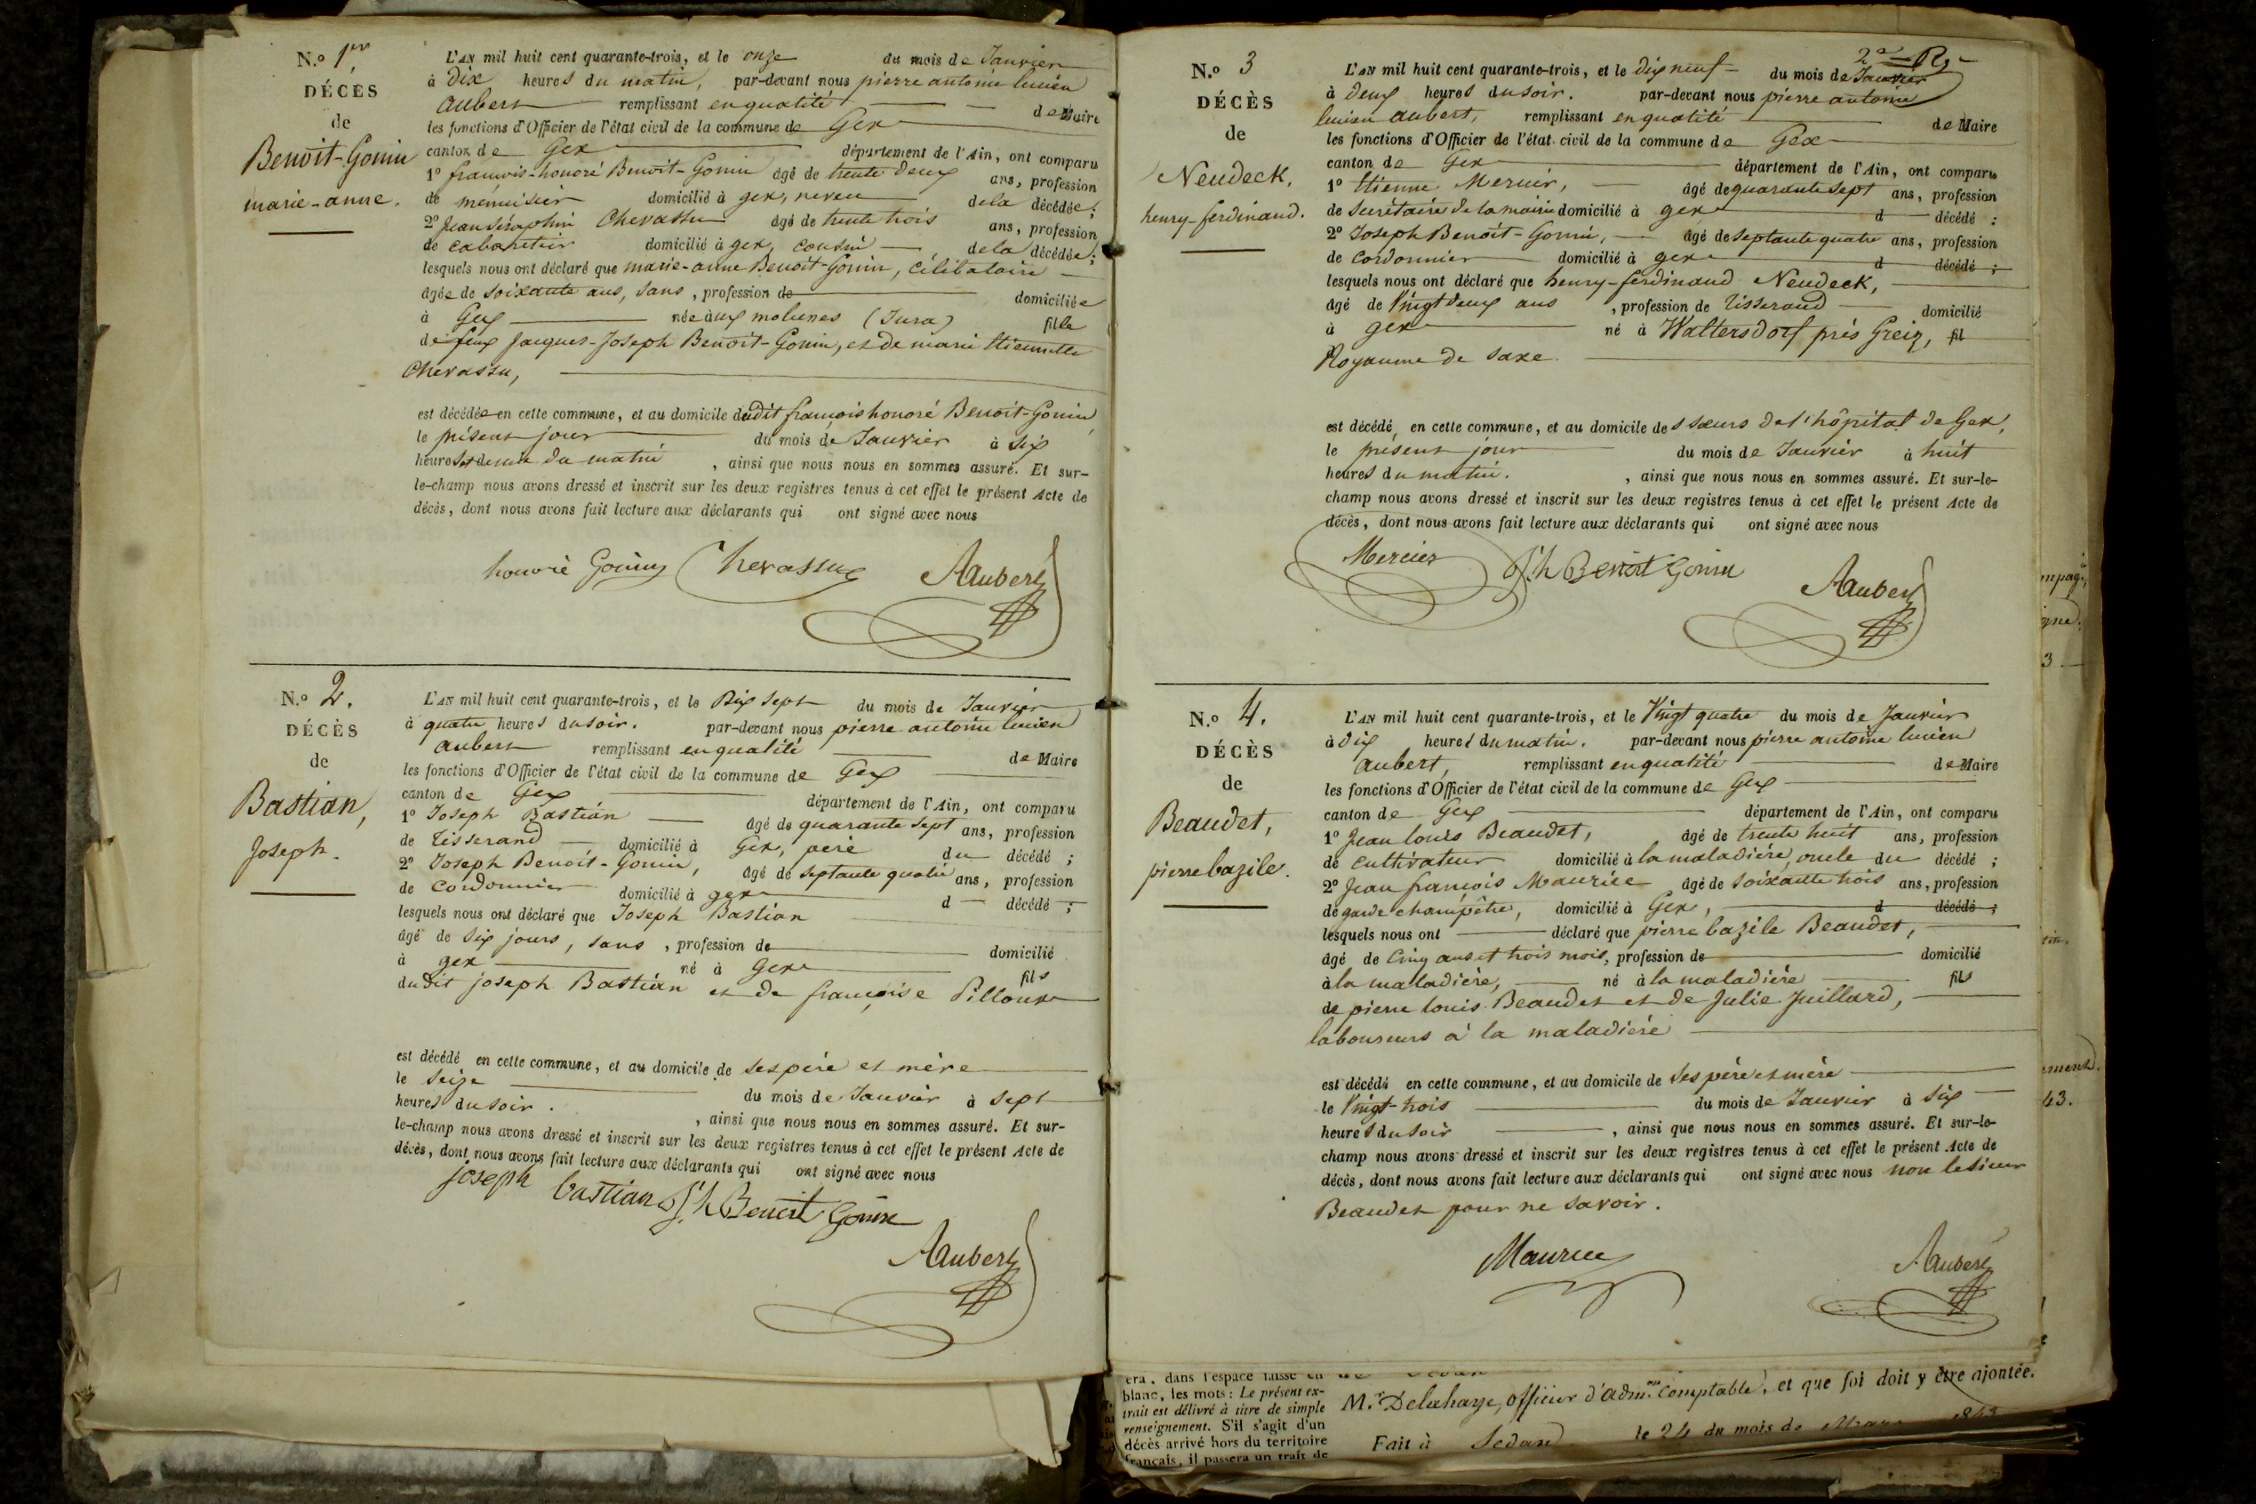 N.º 1er
DÉCÈS
de
Benoit-Gonin
marie-anne.
L'AN mil huit cent quarante-trois, et le onze du mois de Janvier
à Dix heures du matin, par-devant nous pierre antoine lucien
aubert remplissant en qualité de Maire
les fonctions d'Officier de l'état civil de la commune de Gex
canton de Gex département de l'Ain, ont comparu
1º françois-honoré Benoit-Gonin âgé de trente deux ans, profession
de menuisier domicilié à gex, neveu de la décédée;
2º Jean Séraphin Chevassu âgé de trente trois ans, profession
de cabaretier domicilié à gex, cousin de la décédée;
lesquels nous ont déclaré que marie-anne Benoit-Gonin, célibataire
âgée de soixante ans, sans, profession de domiciliée
à Gex née aux molunes (Jura) fille
de feux Jacques-Joseph Benoit-Gonin, et de marie Etiennette
Chevassu,
est décédée en cette commune, et au domicile dudit françois honoré Benoit-Gonin,
le présent jour du mois de Janvier à six
heures et demie du matin, ainsi que nous nous en sommes assuré. Et sur-
le-champ nous avons dressé et inscrit sur les deux registres tenus à cet effet le présent Acte de
décès, dont nous avons fait lecture aux déclarants qui ont signé avec nous
honoré Gonin Chevassu Aubert
N.º 2.
DÉCÈS
de
Bastian,
Joseph.
L'AN mil huit cent quarante-trois, et le Dix sept du mois de Janvier
à quatre heures du soir. par-devant nous pierre antoine lucien
aubert remplissant en qualité de Maire
les fonctions d'Officier de l'état civil de la commune de Gex
canton de Gex département de l'Ain, ont comparu
1º Joseph Bastian âgé de quarante sept ans, profession
de Tisserand domicilié à Gex, père du décédé;
2º Joseph Benoit-Gonin, âgé de septante quatre ans, profession
de cordonnier domicilié à gex d décédé;
lesquels nous ont déclaré que Joseph Bastian
âgé de six jours, sans, profession de domicilié
à gex né à Gex fils
dudit joseph Bastian et de françoise Pilloux
est décédé en cette commune, et au domicile de ses père et mère
le seize du mois de Janvier à sept
heures du soir. , ainsi que nous nous en sommes assuré. Et sur-
le-champ nous avons dressé et inscrit sur les deux registres tenus à cet effet le présent Acte de
décès, dont nous avons fait lecture aux déclarants qui ont signé avec nous
joseph bastian Jh Benoit Gonin
Aubert
2e
N.º 3
DÉCÈS
de
Neudeck,
henry-ferdinand.
L'AN mil huit cent quarante-trois, et le dix neuf du mois de Janvier
à deux heures du soir. par-devant nous pierre antoine
lucien aubert, remplissant en qualité de Maire
les fonctions d'Officier de l'état civil de la commune de Gex
canton de Gex département de l'Ain, ont comparu
1º Etienne Mercier, âgé de quarante sept ans, profession
de secrétaire de la mairie domicilié à gex d décédé;
2º Joseph Benoit-Gonin, âgé de septante quatre ans, profession
de cordonnier domicilié à gex d décédé;
lesquels nous ont déclaré que henry-ferdinand Neudeck,
âgé de Vingt deux ans, profession de Tisserand domicilié
à gex né à Waltersdorf près Greiz, fil
Royaume de Saxe.
est décédé en cette commune, et au domicile des sœurs de l'hôpital de Gex,
le présent jour du mois de Janvier à huit
heures du matin. , ainsi que nous nous en sommes assuré. Et sur-le-
champ nous avons dressé et inscrit sur les deux registres tenus à cet effet le présent Acte de
décès, dont nous avons fait lecture aux déclarants qui ont signé avec nous
Mercier Jh Benoit Gonin Aubert
N.º 4.
DÉCÈS
de
Beaudet,
pierre bazile.
L'AN mil huit cent quarante-trois, et le Vingt quatre du mois de Janvier
à dix heures du matin. par-devant nous pierre antoine lucien
aubert, remplissant en qualité de Maire
les fonctions d'Officier de l'état civil de la commune de Gex
canton de Gex département de l'Ain, ont comparu
1º Jean louis Beaudet, âgé de trente huit ans, profession
de cultivateur domicilié à la maladière, oncle du décédé;
2º Jean françois Maurice âgé de soixante trois ans, profession
de garde champêtre, domicilié à Gex, d décédé;
lesquels nous ont déclaré que pierre bazile Beaudet,
âgé de Cinq ans et trois mois, profession de domicilié
à la maladière, né à la maladière fils
de pierre louis Beaudet et de Julie Juillard,
laboureurs à la maladière
est décédé en cette commune, et au domicile de ses père et mère
le Vingt-trois du mois de Janvier à six
heures du soir, ainsi que nous nous en sommes assuré. Et sur-le-
champ nous avons dressé et inscrit sur les deux registres tenus à cet effet le présent Acte de
décès, dont nous avons fait lecture aux déclarants qui ont signé avec nous non le sieur
Beaudet pour ne savoir.
Maurice Aubert
43.
blanc, les mots: Le présent ex-
trait est délivré à titre de simple
renseignement. S'il s'agit d'un
décès arrivé hors du territoire
français, il passera un trait de
M.r Delahaye, officier d'adm.on comptable, et que foi doit y être ajoutée.
Fait à Sedan le 24 du mois de